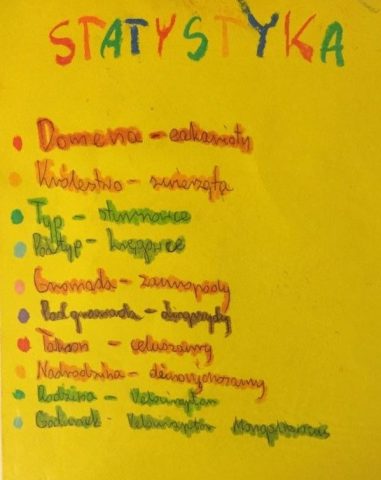 STATYSTYKA
Domena - eukarioty
Królestwo - zwierzęta
Typ - strunowce
Podtyp - kręgowce
Gromada - zauropsydy
Podgromada - diapsydy
Takson - celurozaury
Nadrodzina -
Rodzina - Velociraptor
Gatunek - Velociraptor Mongoliensis